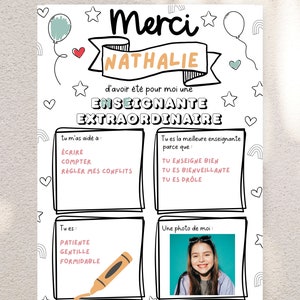 Merci
NATHALIE
d'avoir été pour moi une
ENSEIGNANTE
EXTRAORDINAIRE
Tu m'as aidé à :
ÉCRIRE
COMPTER
RÉGLER MES CONFLITS
Tu es la meilleure enseignante
parce que :
TU ENSEIGNE BIEN
TU ES BIENVEILLANTE
TU ES DRÔLE
Tu es :
PATIENTE
GENTILLE
FORMIDABLE
Une photo de moi :